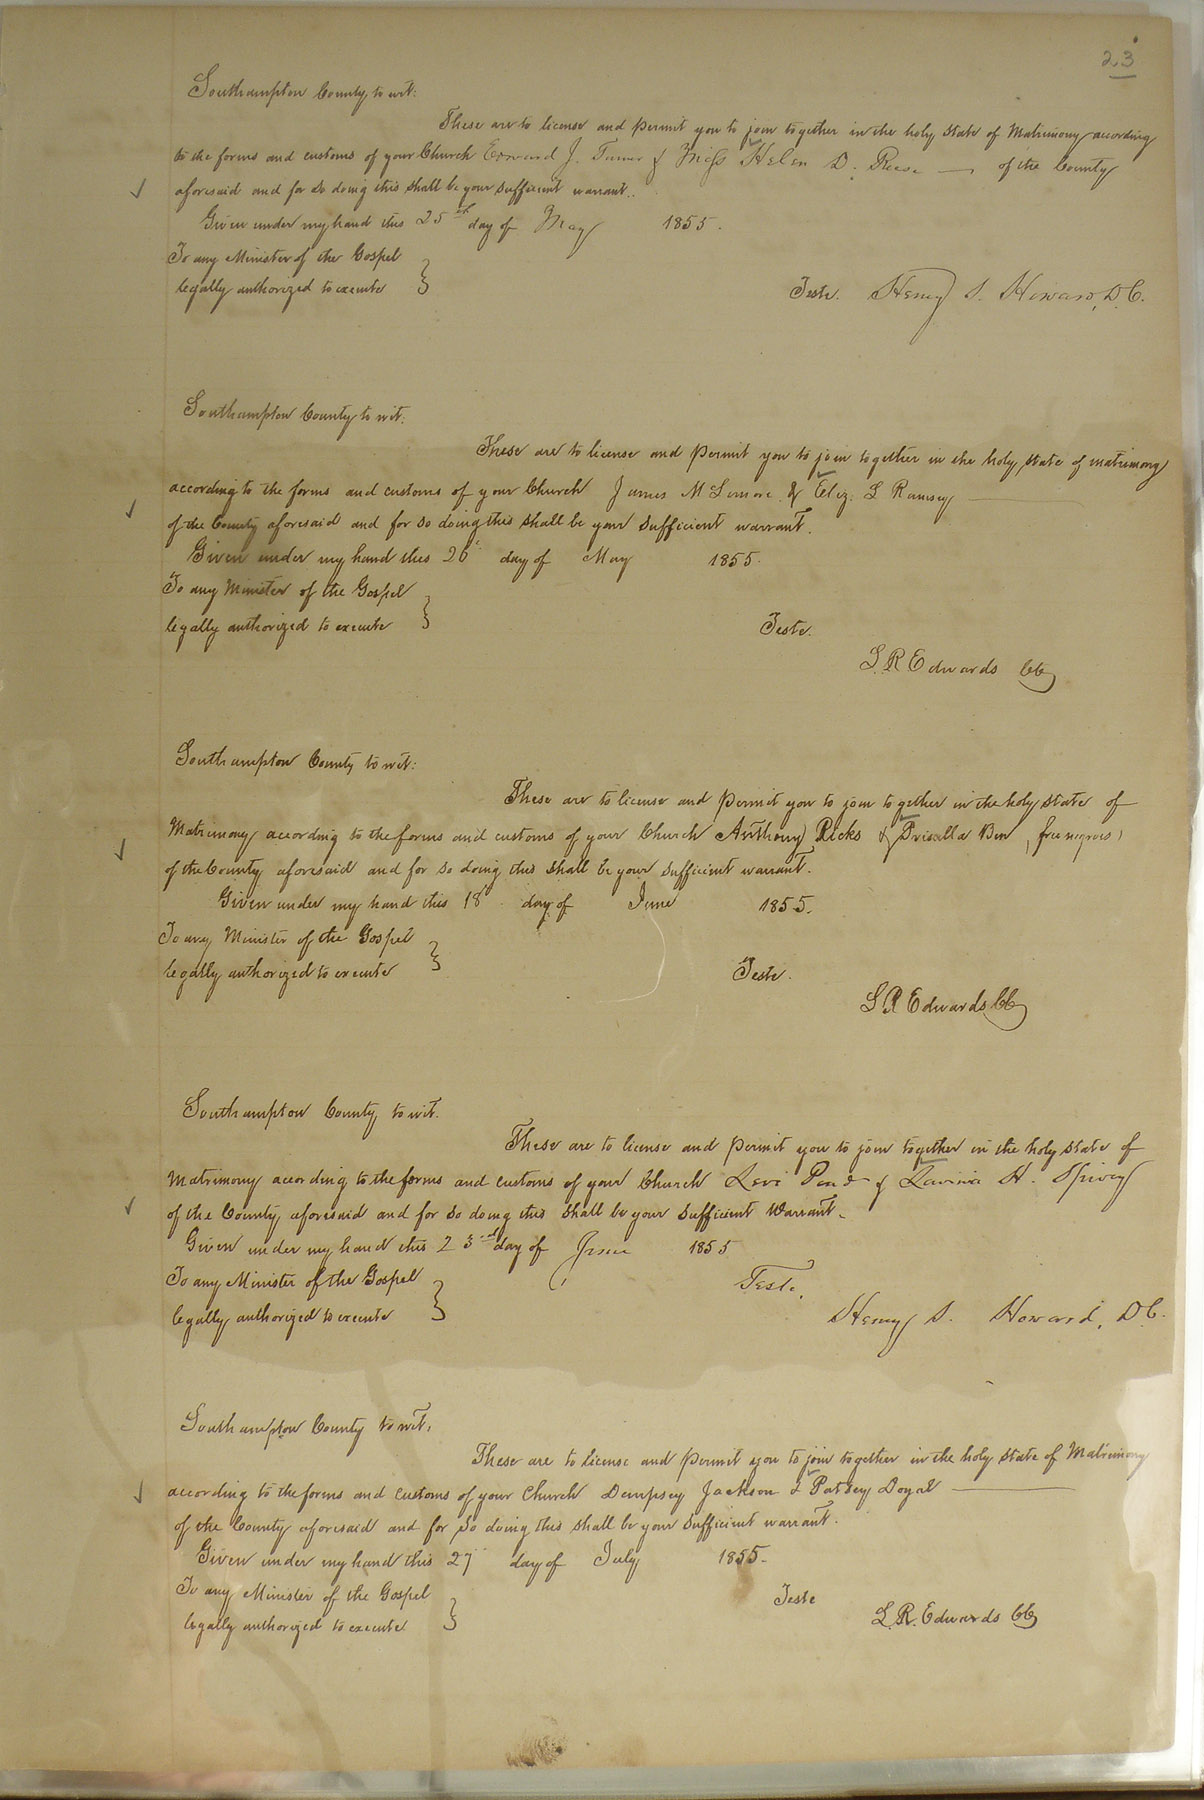 23
Southampton County, to wit:
These are to license and permit you to join together in the holy state of Matrimony according
to the forms and customs of your Church Edward J. Turner & Miss Helen D. Reese — of the County
aforesaid and for so doing this shall be your sufficient warrant.
Given under my hand this 25th day of May 1855.
To any Minister of the Gospel
legally authorized to execute }
Teste. Henry S. Howard, D.C.
Southampton County to wit:
These are to license and permit you to join together in the holy state of matrimony
according to the forms and customs of your Church James McLemore & Eliz: S Ramsey —
of the County aforesaid and for so doing this shall be your sufficient warrant.
Given under my hand this 26 day of May 1855.
To any Minister of the Gospel
legally authorized to execute }
Teste.
L. R. Edwards CC
Southampton County to wit:
These are to license and permit you to join together in the holy state of
Matrimony according to the forms and customs of your Church Anthony Ricks & Prisalla Ben (free negroes)
of the County aforesaid and for so doing this shall be your sufficient warrant.
Given under my hand this 18 day of June 1855.
To any Minister of the Gospel
legally authorized to execute }
Teste.
L R Edwards CC
Southampton County to wit.
These are to license and permit you to join together in the holy state of
Matrimony according to the forms and customs of your Church Levi Pond & Lavinia H. Spivey
of the County aforesaid and for so doing this shall be your sufficient Warrant.
Given under my hand this 23rd day of June 1855
To any Minister of the Gospel
legally authorized to execute }
Teste.
Henry S. Howard, D.C.
Southampton County to wit.
These are to license and permit you to join together in the holy state of Matrimony
according to the forms and customs of your Church Dempsey Jackson & Patsey Doyal —
of the County aforesaid and for so doing this shall be your sufficient warrant.
Given under my hand this 27 day of July 1855.
To any Minister of the Gospel
legally authorized to execute }
Teste
L. R. Edwards CC